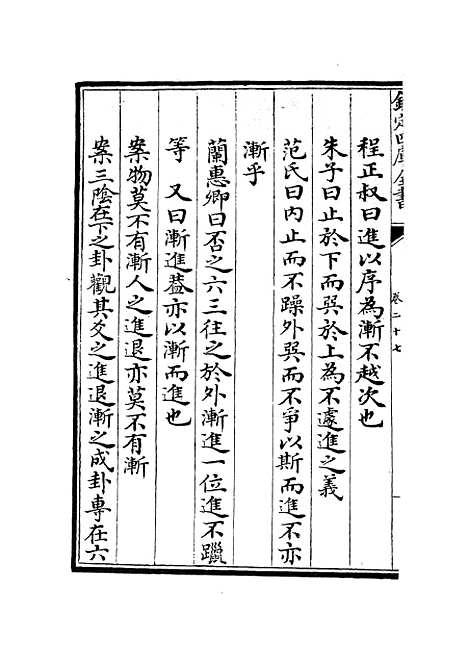 欽定四庫全書
卷二十七
程正叔曰進以序為漸不越次也
朱子曰止於下而巽於上為不遽進之義
范氏曰内止而不躁外巽而不爭以斯而進不亦
漸乎
蘭惠卿曰否之六三往之於外漸進一位進不躐
等 又曰漸進葢亦以漸而進也
案物莫不有漸人之進退亦莫不有漸
案三陰在下之卦觀其爻之進退漸之成卦專在六